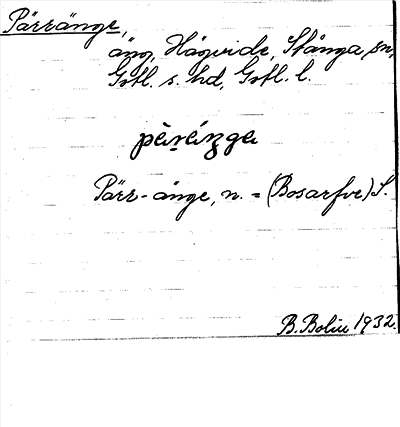 Pärränge,
äng, Hägvide, Stånga sn,
Gotl. s. hd, Gotl. l.
pärä́nge
Pärr-änge, n. = (Bosarfve) S.
B. Bolin 1932.